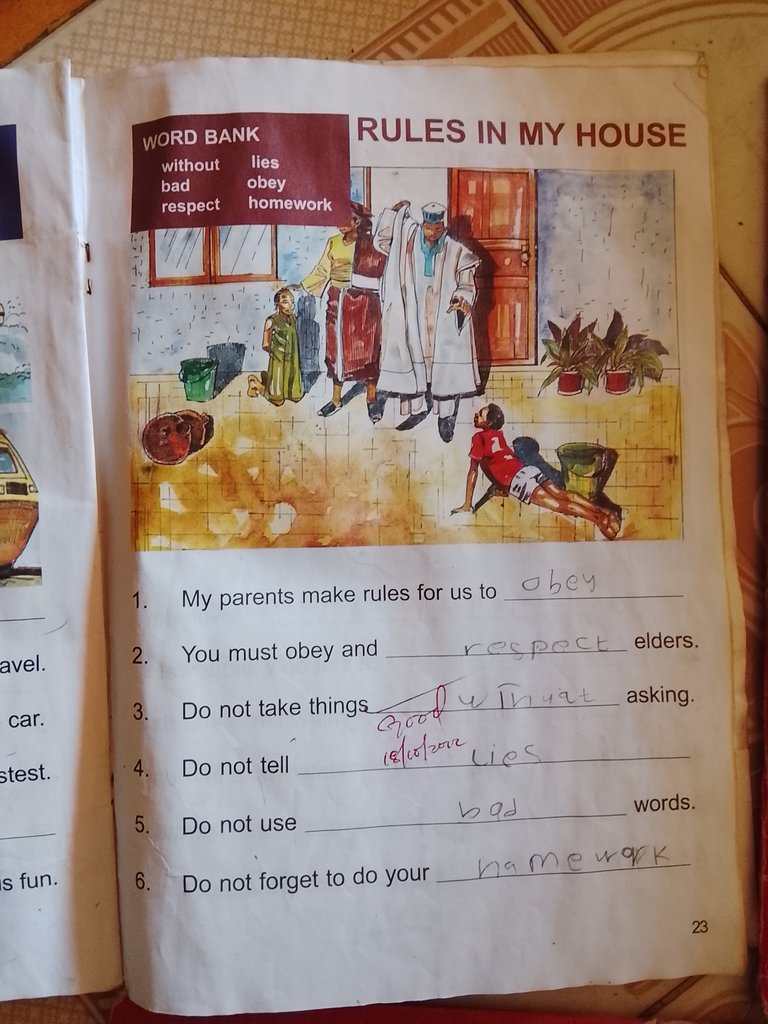 WORD BANK
without lies
bad obey
respect homework
RULES IN MY HOUSE
1. My parents make rules for us to obey
2. You must obey and respect elders.
3. Do not take things withuat asking.
good
18/10/2022
4. Do not tell lies
5. Do not use bad words.
6. Do not forget to do your hamework
23
avel.
car.
stest.
is fun.